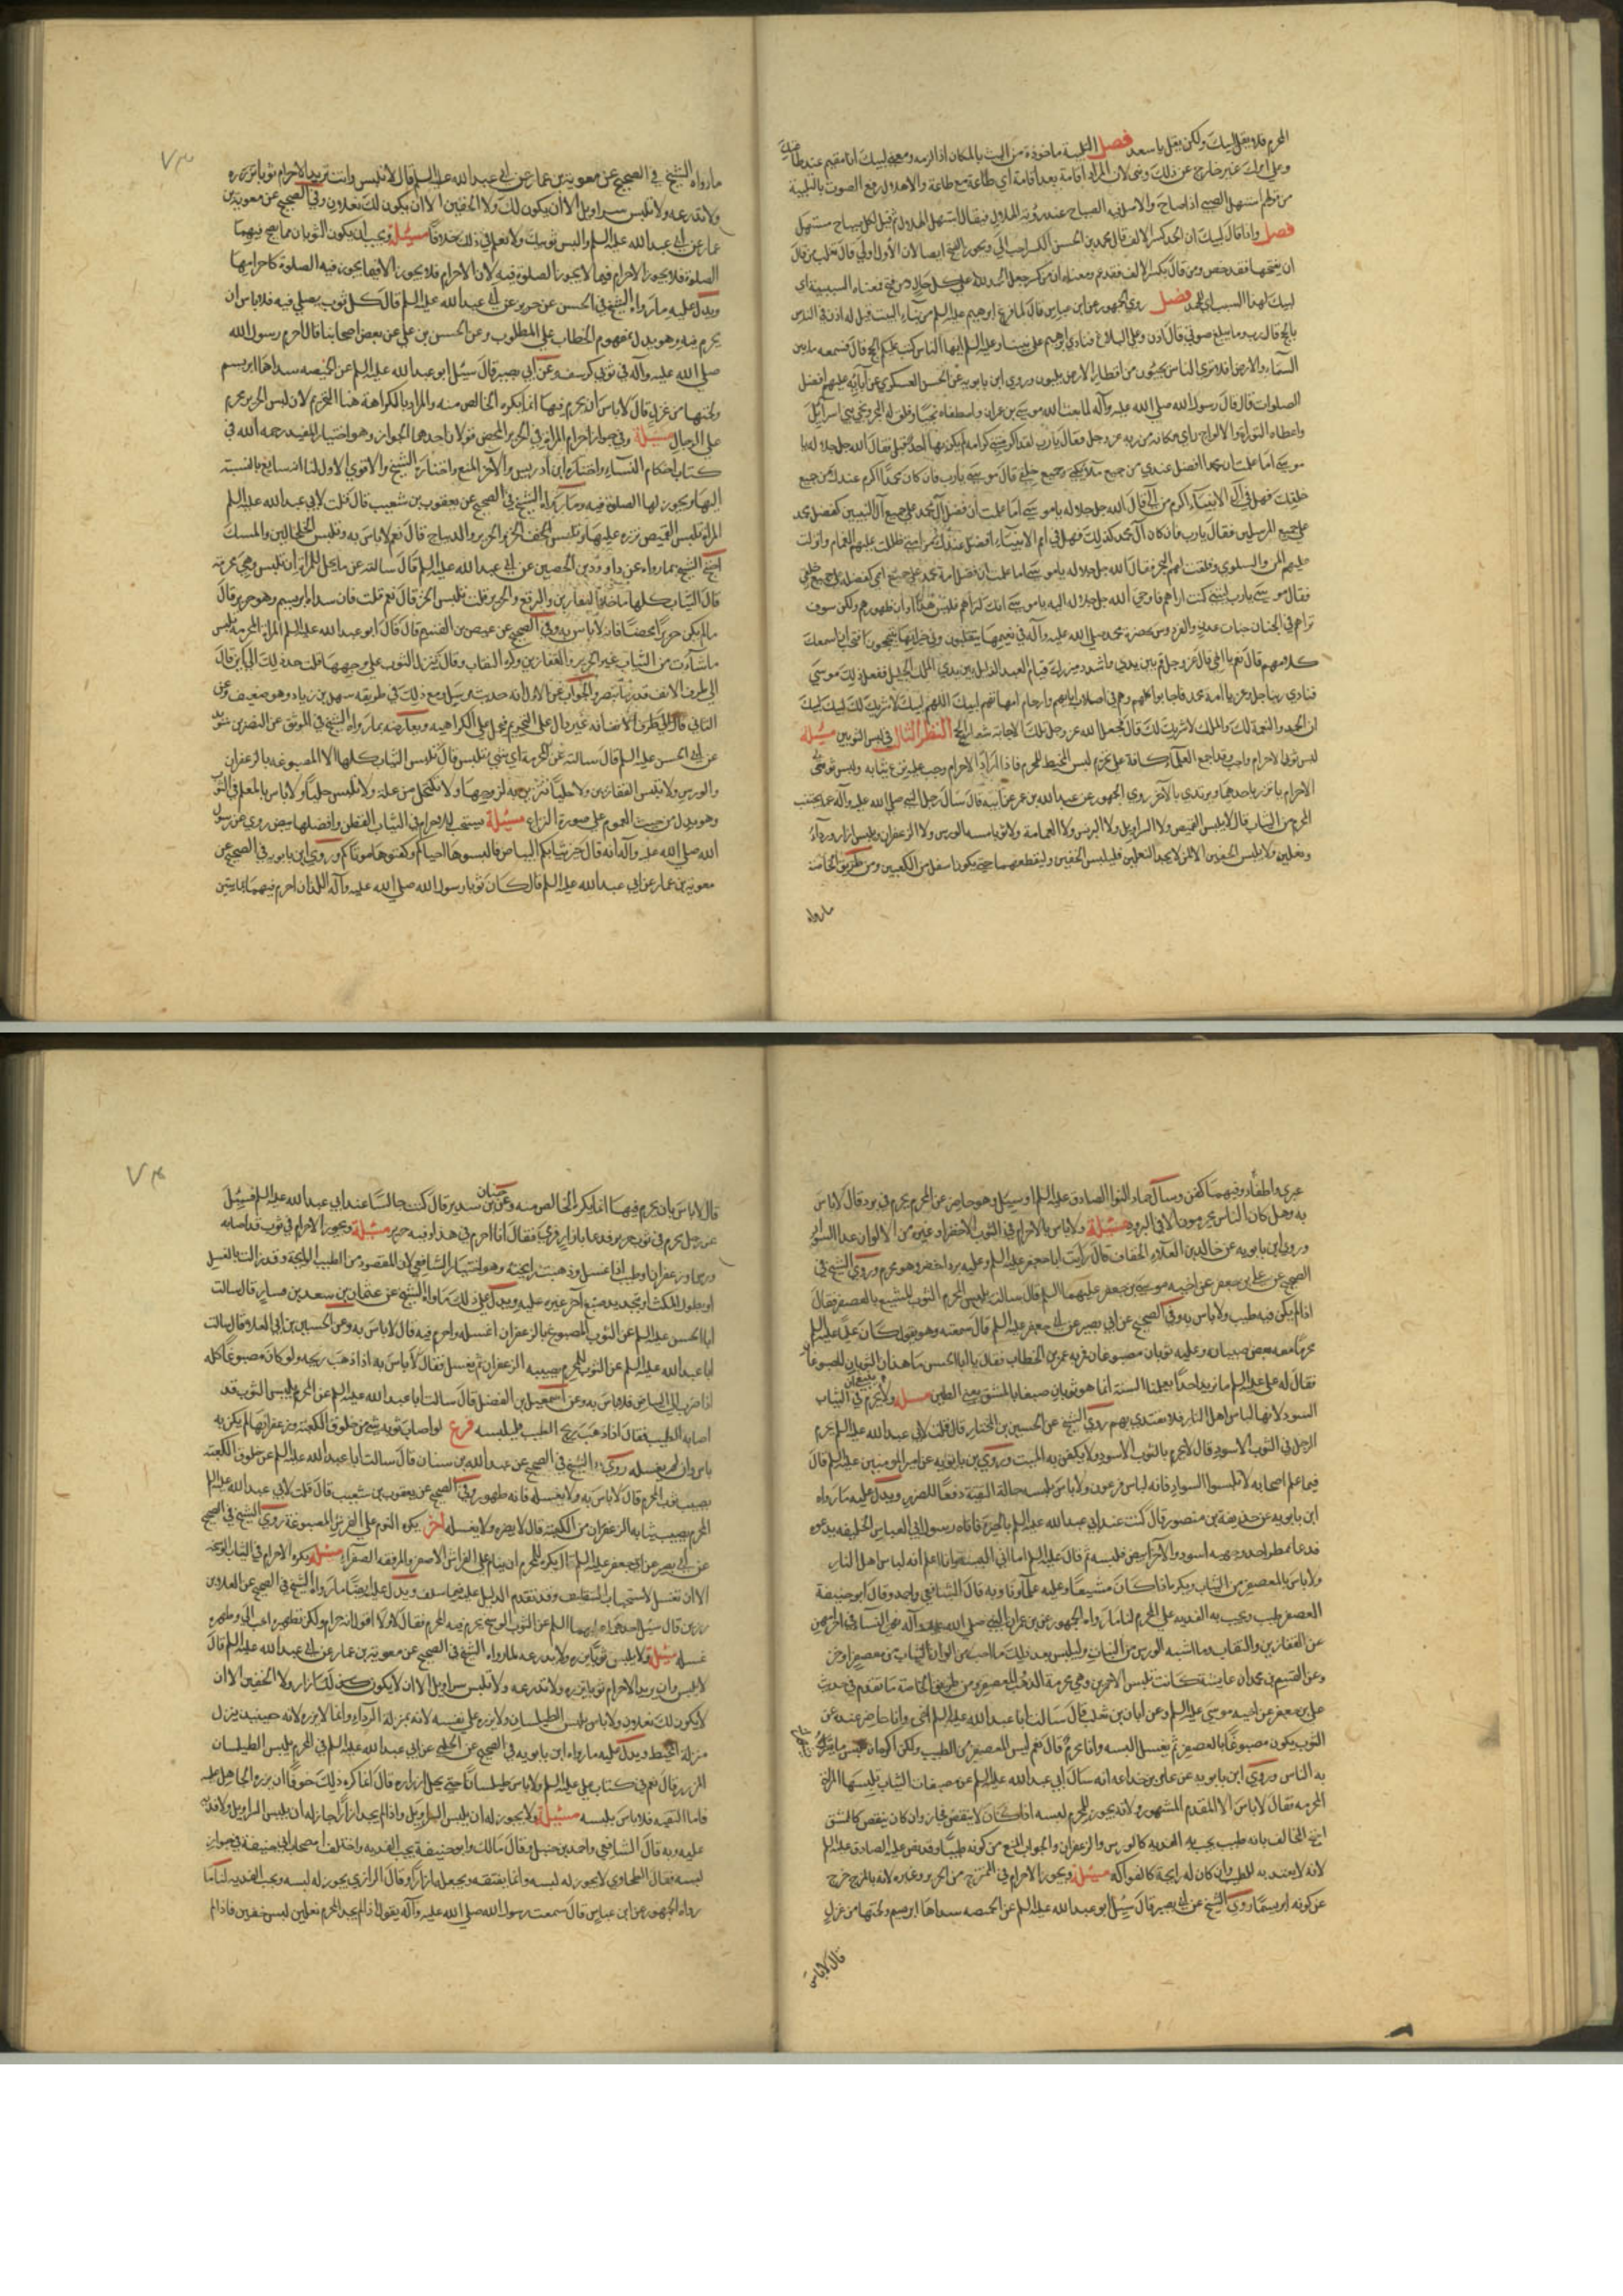 المحرم فلا يقل لبيك ولكن يقل يا سعد فصل التلبية ماخوذة من الب بالمكان اذا لزمه ومعنى لبيك انا مقيم عند طاعتك
وعلى امرك غير خارج عن ذلك وثنى لان المراد اقامة بعد اقامة اي طاعة مع طاعة والاهلال رفع الصوت بالتلبية
من قولهم استهل الصبي اذا صاح والاصل فيه الصياح عند رؤية الهلال فيقال استهل الهلال ثم قيل لكل صياح مستهل
فصل واذا قال لبيك ان الحمد كسر الالف قال محمد بن الحسن الكسر احب الي ويجوز الفتح ايضا لان الاول اولى قال ثعلب من قال
ان بفتحها فقد خص ومن قال بكسر الالف فقد عم ومعناه ان من كسر جعل الحمد لله على كل حال ومن فتح فمعناه لبيك اي
لبيك لهذا السبب اي للحمد فصل روى الجمهور عن ابن عباس قال لما فرغ ابرهيم عليه السلم من بناء البيت قيل له اذن في الناس
بالحج قال رب وما يبلغ صوتي قال اذن وعلي البلاغ فنادى ابراهيم على نبينا وعليه السلم ايها الناس كتب عليكم الحج قال فسمعه ما بين
السماء والارض افلا ترى الناس يجيئون من اقطار الارض يلبون وروى ابن بابويه عن الحسن العسكري عن آبائه عليهم افضل
الصلوات قال قال رسول الله صلى الله عليه وآله لما بعث الله موسى بن عمران واصطفاه نجيا وفلق له البحر ونجى بني اسرائيل
واعطاه التوراة والالواح راى مكانه من ربه عز وجل فقال يا رب لقد اكرمتني بكرامة لم تكرم بها احدا قبلي فقال الله جل جلاله يا
موسى اما علمت ان محمدا افضل عندي من جميع ملائكتي وجميع خلقي قال موسى يا رب فان كان محمد اكرم عندك من جميع
خلقك فهل في آل الانبياء اكرم من آلي قال الله جل جلاله يا موسى اما علمت ان فضل آل محمد على جميع آل النبيين كفضل محمد
على جميع المرسلين فقال يا رب فان كان آل محمد كذلك فهل في امم الانبياء افضل عندك من امتي ظللت عليهم الغمام وانزلت
عليهم المن والسلوى وفلقت لهم البحر فقال الله جل جلاله يا موسى اما علمت ان فضل امة محمد على جميع الامم كفضله على جميع خلقي
فقال موسى يا رب ليتني كنت اراهم فاوحى الله جل جلاله اليه يا موسى انك لن تراهم فليس هذا اوان ظهورهم ولكن سوف
تراهم في الجنان جنات عدن والفردوس بحضرة محمد صلى الله عليه وآله في نعيمها يتقلبون وفي خيراتها يتبحبحون افتحب ان اسمعك
كلامهم قال نعم يا الهي قال عز وجل قم بين يدي واشدد ميزرك قيام العبد الذليل بين يدي الملك الجليل ففعل ذلك موسى
فنادى ربنا جل وعز يا امة محمد فاجابوا كلهم وهم في اصلاب ابائهم وارحام امهاتهم لبيك اللهم لبيك لا شريك لك لبيك
ان الحمد والنعمة لك والملك لا شريك لك قال فجعل الله عز وجل تلك الاجابة شعار الحج النظر الثالث في لبس الثوبين مسئلة
لبس ثوبي الاحرام واجب وقد اجمع العلماء كافة على تحريم لبس المخيط للمحرم فاذا اراد الاحرام وجب عليه نزع ثيابه ولبس ثوبي
الاحرام ياتزر باحدهما ويرتدي بالآخر روى الجمهور عن عبد الله بن عمر عن ابيه قال سال رجل النبي صلى الله عليه وآله عما يجتنب
المحرم من الثياب قال لا يلبس القميص ولا السراويل ولا البرنس ولا العمامة ولا ثوبا مسه الورس ولا الزعفران وليلبس ازار ورداء
ونعلين ولا يلبس الخفين الا ان لا يجد النعلين فليلبس الخفين وليقطعهما حتى يكونا اسفل من الكعبين ومن طريق الخاصة
ما رواه
٧٣
ما رواه الشيخ في الصحيح عن معوية بن عمار عن ابي عبد الله عليه السلم قال لا تلبس وانت تريد الاحرام ثوبا تزره
ولا تدرعه ولا تلبس سراويل الا ان لا يكون لك ولا الخفين الا ان يكون لك نعلان وفي الصحيح عن معوية بن
عمار عن ابي عبد الله عليه السلم والبس ثوبيك ولا نعلم في ذلك خلافا مسئلة ويجب ان يكون الثوبان مما يصح فيهما
الصلوة فلا يجوز الاحرام فيما لا يجوز الصلوة فيه لان الاحرام فلا يجوز الا فيما يجوز فيه الصلوة كاحرامها
ويدل عليه ما رواه الشيخ في الحسن عن حريز عن ابي عبد الله عليه السلم قال كل ثوب يصلى فيه فلا باس ان
يحرم فيه وهو يدل بمفهوم الخطاب على المطلوب وعن الحسن بن علي عن بعض اصحابنا قال احرم رسول الله
صلى الله عليه وآله في ثوبي كرسف وعن ابي بصير قال سئل ابو عبد الله عليه السلم عن الخميصة سداها ابريسم
ولحمتها من غزل قال لا باس ان يحرم فيها انما يكره الخالص منه والمراد بالكراهة هنا التحريم لان لبس الحرير محرم
على الرجال مسئلة وفي جواز احرام المراة في الحرير المحض قولان احدهما الجواز وهو اختيار المفيد رحمه الله في
كتاب احكام النساء واختاره ابن ادريس والآخر المنع واختاره الشيخ والاقوى الاول لنا انه سايغ بالنسبة
اليها ويجوز لها الصلوة فيه وما رواه الشيخ في الصحيح عن يعقوب بن شعيب قال قلت لابي عبد الله عليه السلم
المراة تلبس القميص تزره عليها وتلبس الخز والحرير والديباج قال نعم لا باس به وتلبس الخلخالين والمسك
احتج الشيخ بما رواه عن داود بن الحصين عن ابي عبد الله عليه السلم قال سالته عن ما يحل للمراة ان تلبس وهي محرمة
قال الثياب كلها ما خلا القفازين والبرقع والحرير قلت تلبس الخز قال نعم قلت فان سداه ابريسم وهو حرير قال
ما لم يكن حريرا محضا فانه لا باس به وفي الصحيح عن عيص بن القسم قال قال ابو عبد الله عليه السلم المراة المحرمة تلبس
ما شاءت من الثياب غير الحرير والقفازين وكره النقاب وقال تسدل الثوب على وجهها قلت حد ذلك الى اين قال
الى طرف الانف قدر ما تبصر والجواب عن الاول انه حديث مرسل ومع ذلك في طريقه سهل بن زياد وهو ضعيف وعن
الثاني انه غير دال على التحريم فيحمل على الكراهية ويعارضه بما رواه الشيخ في الموثق عن النضر بن سويد
عن ابي الحسن عليه السلم قال سالته عن المحرمة اي شئ تلبس قال تلبس الثياب كلها الا المصبوغة بالزعفران
والورس ولا تلبس القفازين ولا حليا تتزين به لزوجها ولا تكتحل من علة ولا تلبس حليا ولا باس بالمعلم في الثوب
وهو يدل من حيث العموم على صورة النزاع مسئلة ويستحب للاحرام في الثياب القطن وافضلها البيض روي عن رسول
الله صلى الله عليه وآله انه قال خير ثيابكم البياض فالبسوها احياكم وكفنوها موتاكم وروى ابن بابويه في الصحيح عن
معوية بن عمار عن ابي عبد الله عليه السلم قال كان ثوبا رسول الله صلى الله عليه وآله اللذان احرم فيهما يمانيين
عبري واظفار وفيهما كفن وسال حماد النوا الصادق عليه السلم او سئل وهو حاضر عن المحرم يحرم في برد قال لا باس
به وهل كان الناس يحرمون الا في البرود مسئلة ولا باس بالاحرام في الثوب الاخضر وغيره من الالوان عدا السود
وروى ابن بابويه عن خالد بن العلاء الخفاف قال رايت ابا جعفر عليه السلم وعليه برد اخضر وهو محرم وروى الشيخ في
الصحيح عن علي بن جعفر عن اخيه موسى بن جعفر عليهما السلم قال سالت يلبس المحرم الثوب المشبع بالعصفر فقال
اذا لم يكن فيه طيب ولا باس به وفي الصحيح عن ابي بصير عن ابي جعفر عليه السلم قال سمعته وهو يقول كان علي عليه السلم
محرما معه بعض صبيانه وعليه ثوبان مصبوغان فمر به عمر بن الخطاب فقال يا ابا الحسن ما هذان الثوبان المصبوغان
فقال له علي عليه السلم ما نريد احدا يعلمنا السنة انما هو ثوبان صبغا بالمشق يعني الطين مسئلة ولا يحرم في الثياب
السود لانها لباس اهل النار فلا يقتدى بهم روى الشيخ عن الحسين بن المختار قال قلت لابي عبد الله عليه السلم يحرم
الرجل في الثوب الاسود قال لا يحرم بالثوب الاسود ولا يكفن به الميت وروى بن بابويه عن امير المومنين عليه السلم قال
فيما علم اصحابه لا تلبسوا السواد فانه لباس فرعون ولا باس بلبسه حالة التقية دفعا للضرر ويدل عليه ما رواه
ابن بابويه عن حذيفة بن منصور قال كنت عند ابي عبد الله عليه السلم بالحيرة فاتاه رسول ابي العباس الخليفة يدعوه
فدعا بممطر احد وجهيه اسود والآخر ابيض فلبسه ثم قال عليه السلم اما اني البسه وانا اعلم انه لباس اهل النار
ولا باس بالمعصفر من الثياب ويكره اذا كان مشبعا وعليه علماؤنا وبه قال الشافعي واحمد وقال ابو حنيفة
العصفر طيب ويجب به الفدية على المحرم لنا ما رواه الجمهور عن بن عمر ان النبي صلى الله عليه وآله نهى النساء في احرامهن
عن القفازين والنقاب وما مسه الورس من الثياب وليلبس بعد ذلك ما احب من الوان الثياب من معصفر او خز
وعن القسم بن محمد ان عايشة كانت تلبس الاحمرين وهي محرمة الذهب المعصفر ومن طريق الخاصة ما تقدم في حديث
علي بن جعفر عن اخيه موسى عليه السلم وعن ابان بن تغلب قال سالت ابا عبد الله عليه السلم اخي وانا حاضر عنده عن
الثوب يكون مصبوغا بالعصفر ثم يغسل البسه وانا محرم قال نعم ليس العصفر من الطيب ولكن اكره ان تلبس ما يشهرك
به الناس وروى ابن بابويه عن عامر بن جذاعة انه سال ابي عبد الله عليه السلم عن مصبغات الثياب تلبسها المراة
المحرمة فقال لا باس الا المفدم المشهور ولانه يجوز للمحرم لبسه اذا كان لا ينفض فجاز وان كان ينفض كالمشق
احتج المخالف بانه طيب يجب به الفدية كالورس والزعفران والجواب المنع من كونه طيبا وقد نص عليه الصادق عليه السلم
لانه لا يعتد به للطيب وان كان له رايحة كالفواكه مسئلة ويجوز الاحرام في الممتزج من الحرير وغيره لانه بالمزج خرج
عن كونه ابريسما روى الشيخ عن ابي بصير قال سئل ابو عبد الله عليه السلم عن الخميصة سداها ابريسم ولحمتها من غزل
قال لا باس
٧٤
قال لا باس بان يحرم فيها انما يكره الخالص منه وعن حنان بن سدير قال كنت جالسا عند ابي عبد الله عليه السلم فسئل
عن رجل يحرم في ثوب فيه حرير فدعا بازار قرقبي فقال انا احرم في هذا وفيه حرير مسئلة ويجوز الاحرام في ثوب قد اصابه
ورس او زعفران او طيب اذا غسل وذهبت رايحته وهو اختيار الشافعي لان المقصود من الطيب الرايحة وقد زالت بالغسل
او بطول المكث او تجديد صبغ آخر غيره عليه ويدل على ذلك ما رواه الشيخ عن عثمان بن سعيد بن يسار قال سالت
ابا الحسن عليه السلم عن الثوب المصبوغ بالزعفران اغسله واحرم فيه قال لا باس به وعن الحسين بن ابي العلا قال سالت
ابا عبد الله عليه السلم عن الثوب للمحرم يصيبه الزعفران ثم يغسل فقال لا باس به اذا ذهب ريحه ولو كان مصبوغا كله
اذا ضرب الى البياض فلا باس به وعن اسمعيل بن الفضل قال سالت ابا عبد الله عليه السلم عن المحرم يلبس الثوب قد
اصابه الطيب فقال اذا ذهب ريح الطيب فليلبسه فرع لو اصاب ثوبه شئ من خلوق الكعبة وزعفرانها لم يكن به
باس وان لم يغسله روى الشيخ في الصحيح عن عبد الله بن سنان قال سالت ابا عبد الله عليه السلم عن خلوق الكعبة
يصيب ثوب المحرم قال لا باس به ولا يغسله فانه طهور وفي الصحيح عن يعقوب بن شعيب قال قلت لابي عبد الله عليه السلم
المحرم يصيب ثيابه الزعفران من الكعبة قال لا يضره ولا يغسله آخر يكره النوم على الفرش المصبوغة روى الشيخ في الصحيح
عن ابي بصير عن ابي جعفر عليه السلم قال يكره للمحرم ان ينام على الفراش الاصفر والمرفقة الصفراء مسئلة ويكره الاحرام في الثياب الوسخة
الا ان تغسل لاستحباب التنظيف وقد تقدم الدليل عليه فيما سلف ويدل عليه ايضا ما رواه الشيخ في الصحيح عن العلا بن
رزين قال سئل احدهما عليهما السلم عن الثوب الوسخ يحرم فيه المحرم فقال لا ولا اقول انه حرام ولكن تطهيره احب الي وطهره
غسله مسئلة ولا يلبس ثوبا يزره ولا يدرعه لما رواه الشيخ في الصحيح عن معوية بن عمار عن ابي عبد الله عليه السلم قال
لا يلبس وان يريد الاحرام ثوبا يزره ولا تدرعه ولا تلبس سراويل الا ان لا يكون لك ازار ولا الخفين الا ان
لا يكون لك نعلان ولا باس بلبس الطيلسان ولا يزره على نفسه لانه بمنزلة الرداء وانما لا يزره لانه حينئذ ينزل
منزلة المخيط ويدل عليه ما رواه ابن بابويه في الصحيح عن الحلبي عن ابي عبد الله عليه السلم في المحرم يلبس الطيلسان
المزرر قال نعم في كتاب علي عليه السلم ولا باس طيلسانا حتى يحل ازراره قال انما كره ذلك خوفا ان يزره الجاهل عليه
فاما الفقيه فلا باس بلبسه مسئلة ولا يجوز له ان يلبس السراويل واذا لم يجد ازارا جاز له ان يلبس السراويل ولا فدية
عليه وبه قال الشافعي واحمد بن حنبل وقال مالك وابو حنيفة يجب الفدية واختلف اصحاب ابي حنيفة في جواز
لبسه فقال الطحاوي لا يجوز له لبسه وانما يفتقه ويجعله مازرا وقال الرازي يجوز له لبسه ويجب الفدية لنا ما
رواه الجمهور عن ابن عباس قال سمعت رسول الله صلى الله عليه وآله يقول اذا لم يجد المحرم نعلين لبس خفين فاذا لم